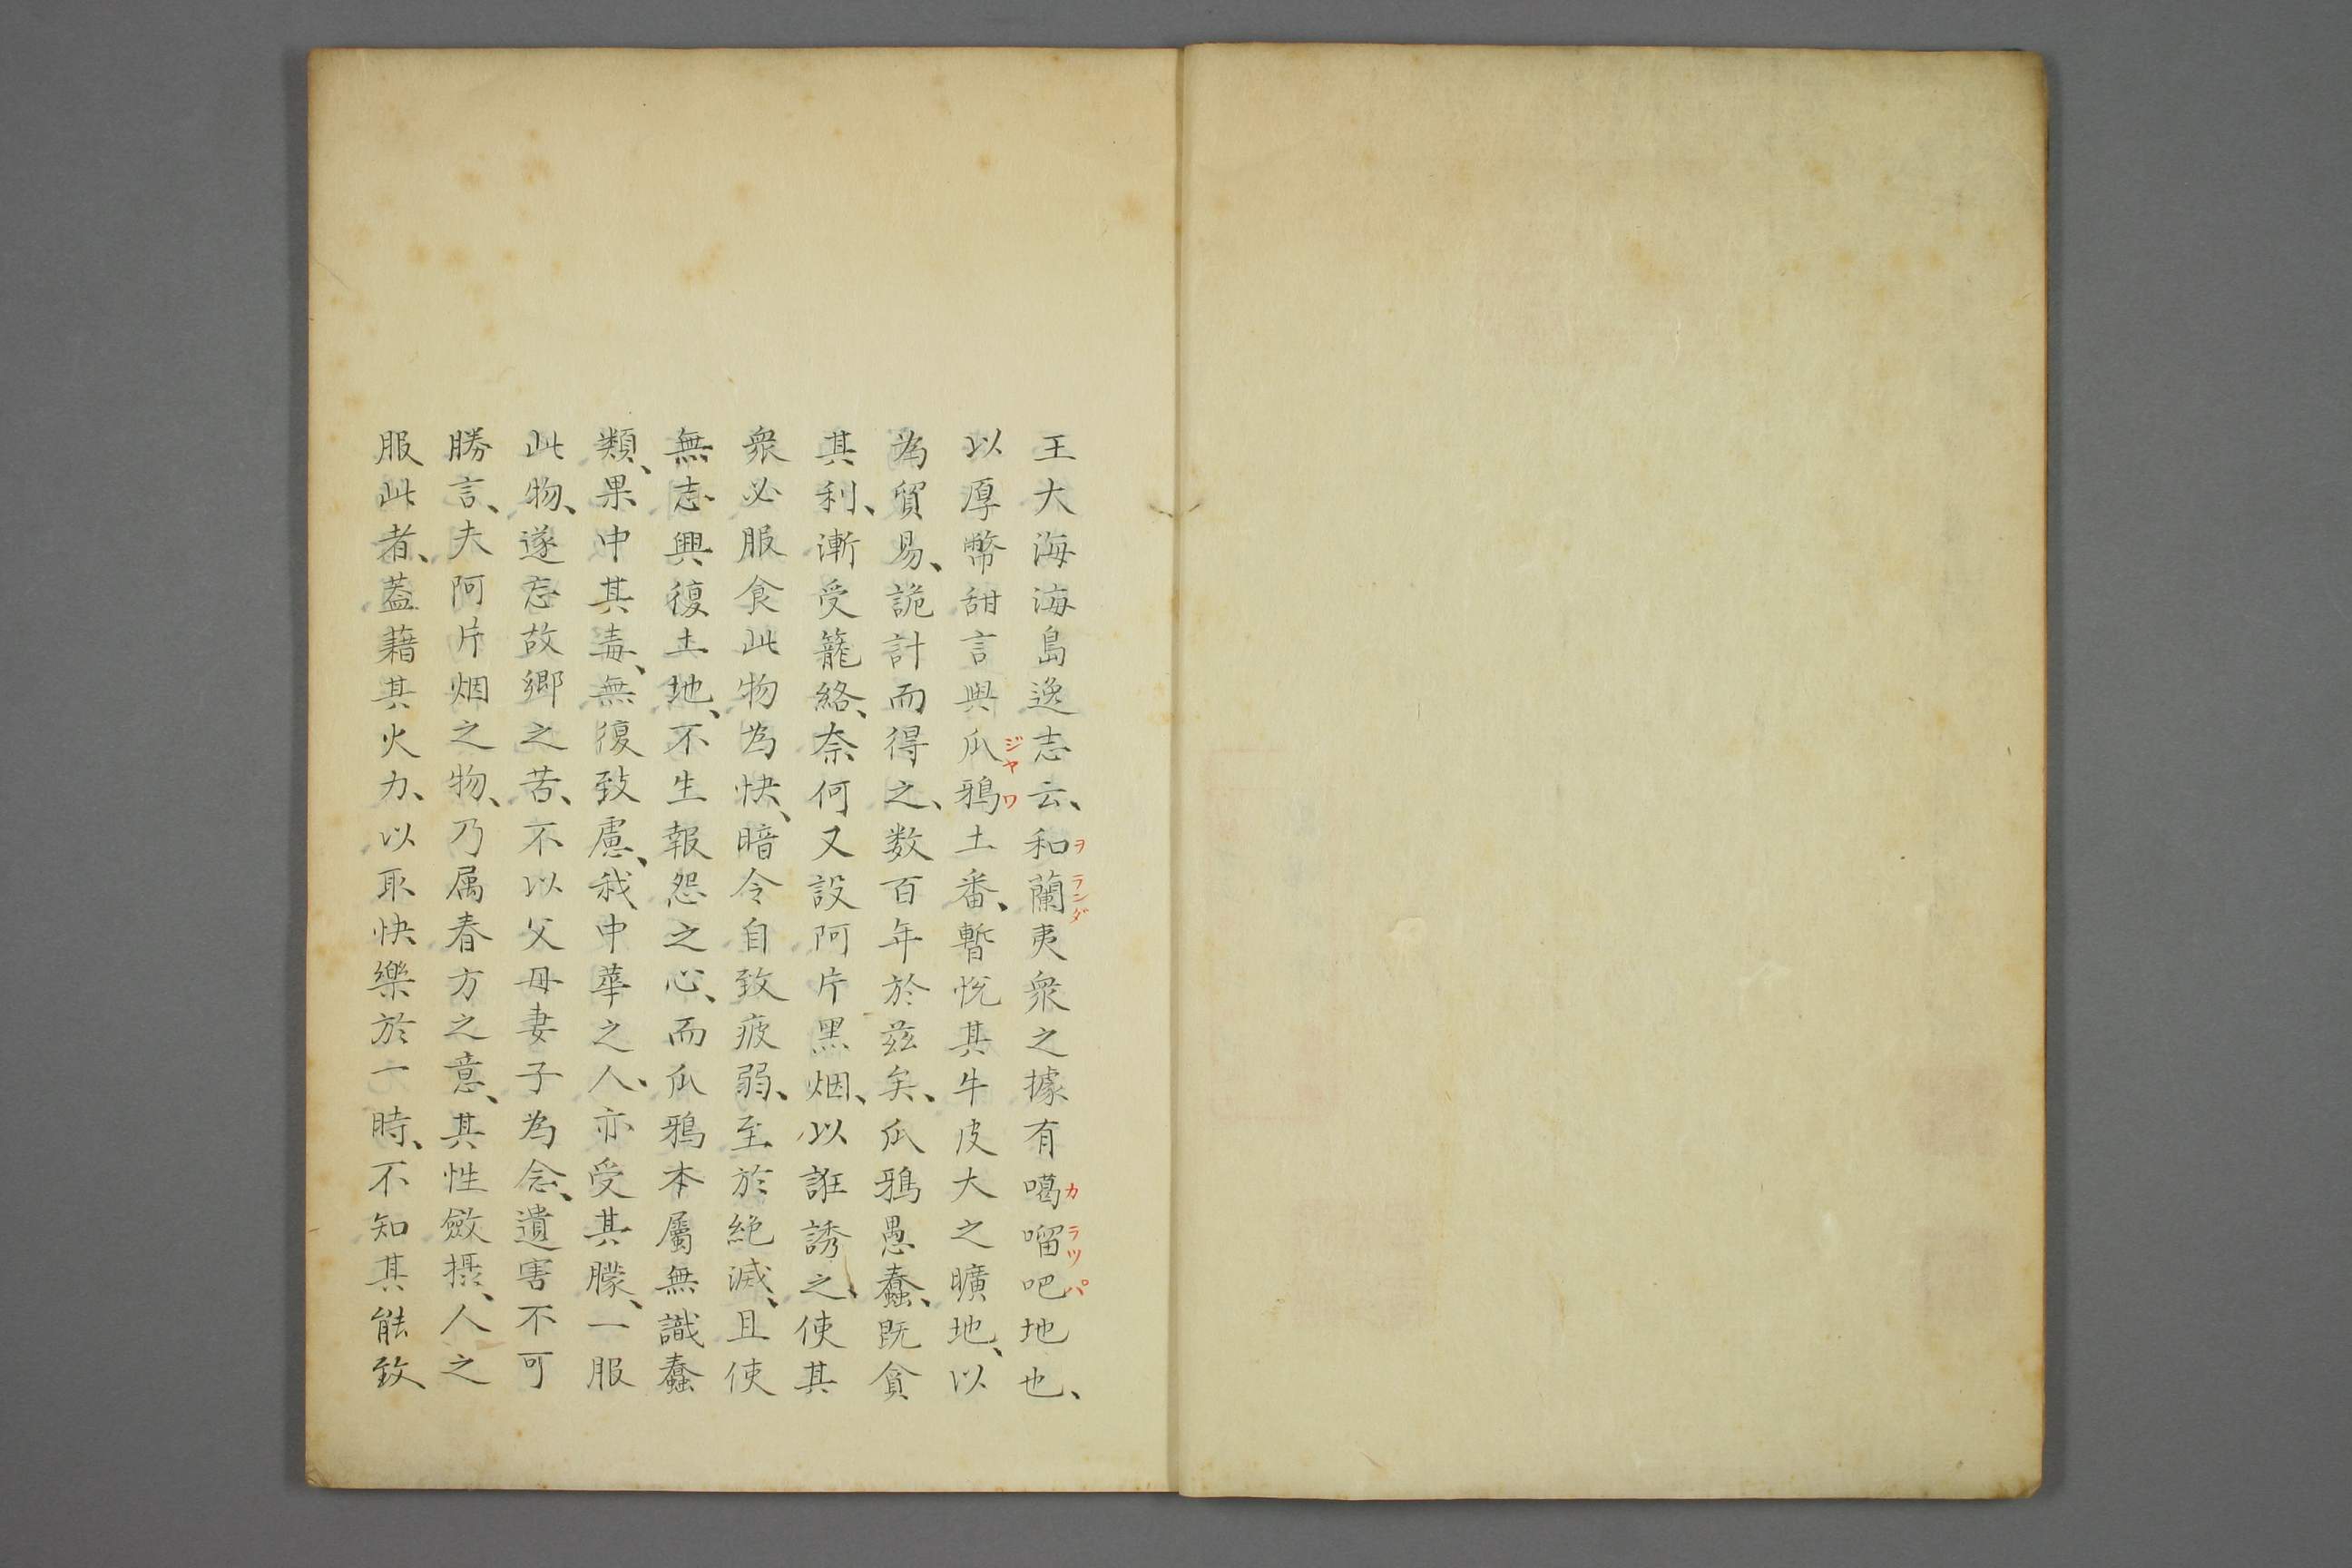 王大海海島逸志云、和蘭夷衆之據有噶㗦吧地也、
ヲランダ
カラツパ
以厚幣甜言與瓜鴉土番、暫悅其牛皮大之曠地、以
ジヤワ
為貿易、詭計而得之、数百年於茲矣、瓜鴉愚蠢、既貪
其利、漸受籠絡、奈何又設阿片黑烟、以誑誘之、使其
衆必服食此物為快、暗令自致疲弱、至於絶滅、且使
無志興復土地、不生報怨之心、而瓜鴉本屬無識蠢
類、果中其毒、無復致慮、我中華之人、亦受其朦、一服
此物、遂忘故鄉之苦、不以父母妻子為念、遺害不可
勝言、夫阿片烟之物、乃属春方之意、其性斂摄、人之
服此者、蓋藉其火力、以取快樂於一時、不知其能致